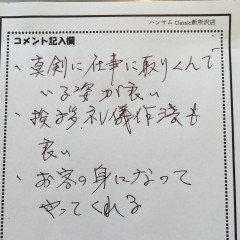 ハンサム Classic新所沢店
コメント記入欄
・真剣に仕事に取りくんで
いる姿が良い
・挨拶、礼儀作法も
良い
・お客の身になって
やってくれる